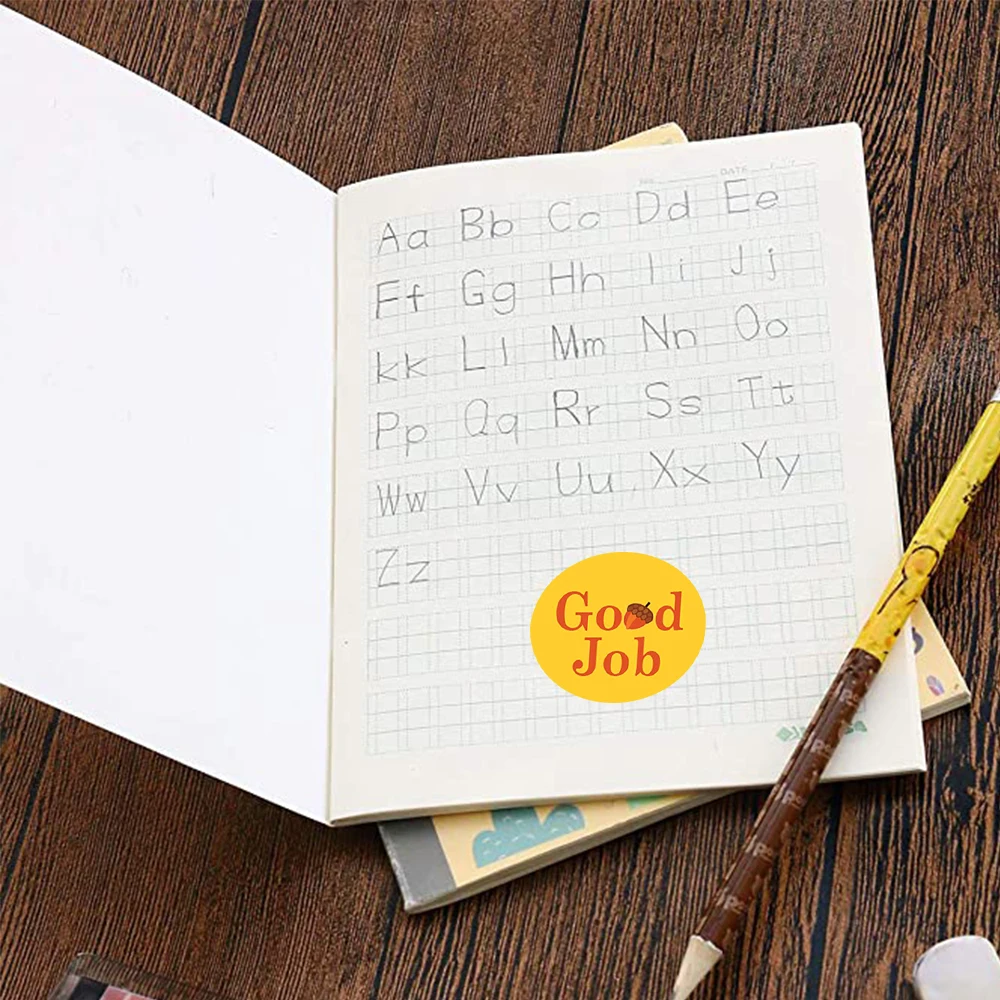 DATE
Aa Bb Cc Dd Ee
Ff Gg Hh Ii Jj
kk Ll Mm Nn Oo
Pp Qq Rr Ss Tt
Ww Vv Uu Xx Yy
Zz
Good
Job